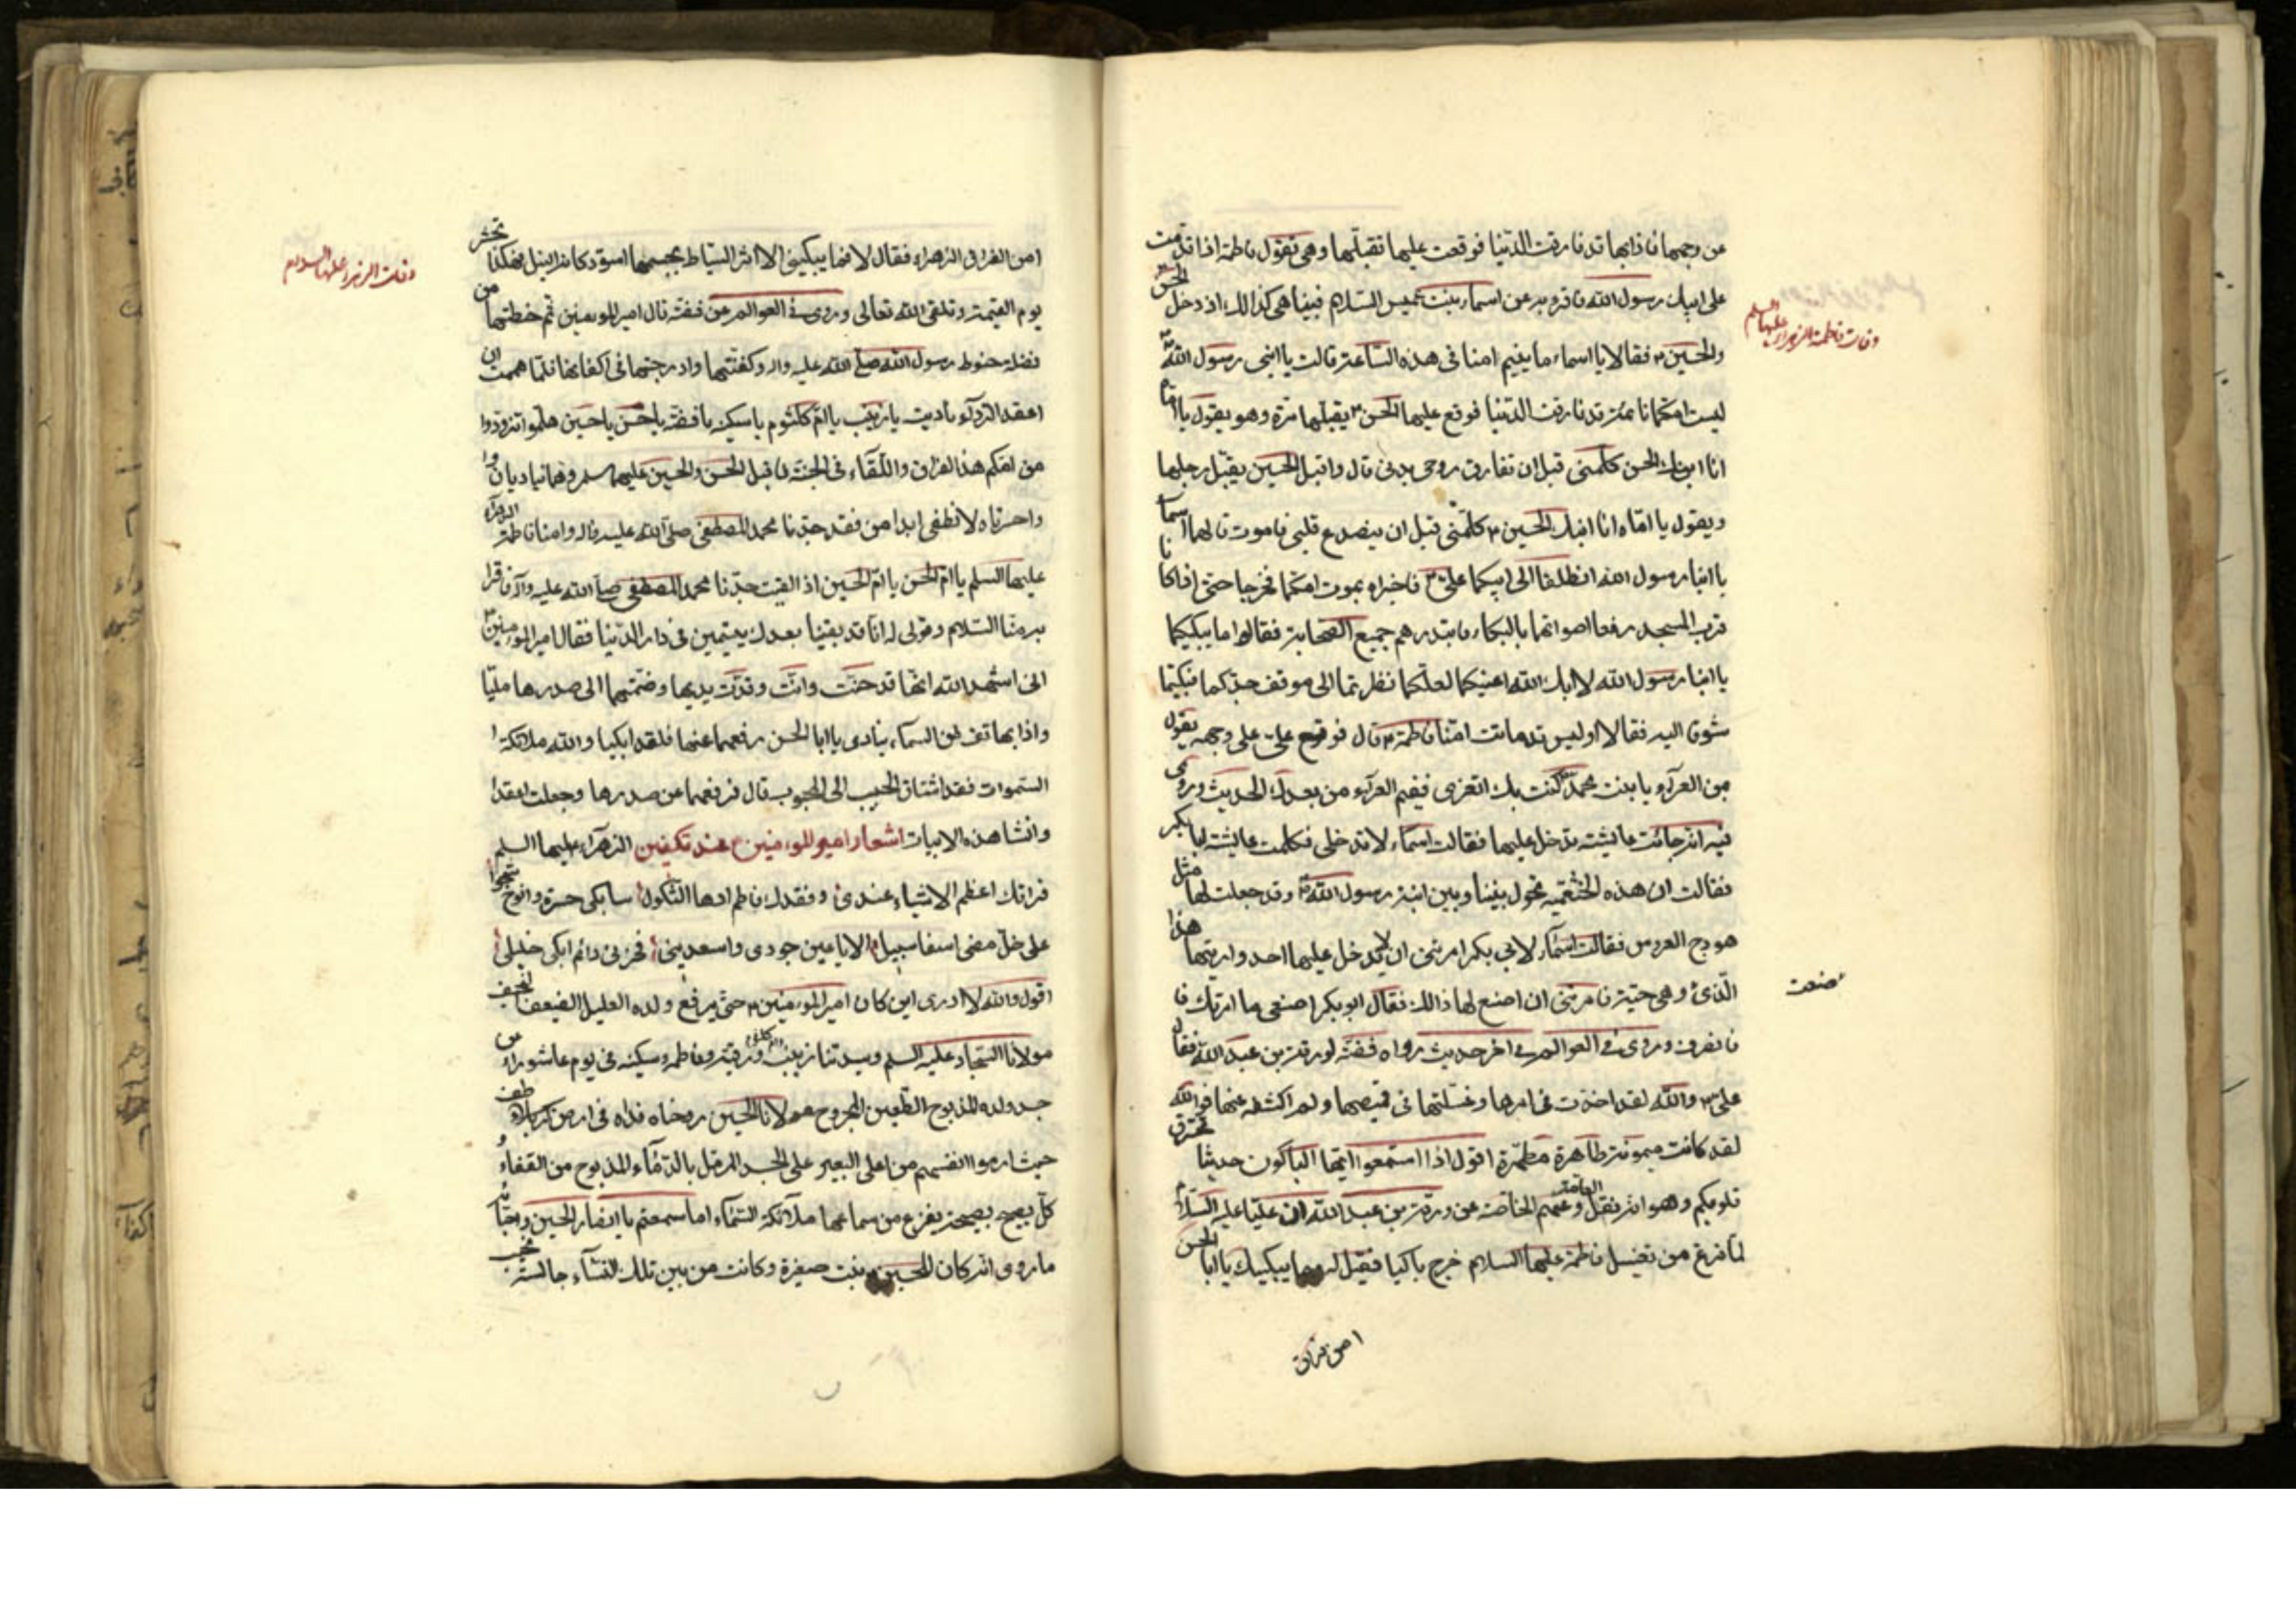 عن وجهها فاذا بها قد فارقت الدنيا فوقعت عليها تقبلها وهي تقول فاطمة اذا قدمت
على ابيك رسول الله فاقرئيه عن اسماء بنت عميس السلام فبينا هي كذالك اذ دخل الحسن
والحسين فقالا يا اسماء ما ينيم امنا في هذه الساعة قالت يا ابني رسول الله
ليست امكما نائمة قد فارقت الدنيا فوقع عليها الحسن يقبلها مرة وهو يقول يا اماه
انا ابنك الحسن كلميني قبل ان تفارق روحي بدني قال واقبل الحسين يقبل رجلها
ويقول يا اماه انا ابنك الحسين كلميني قبل ان ينصدع قلبي فاموت قالت لهما اسماء
يا ابنا رسول الله انطلقا الى ابيكما علي فاخبراه بموت امكما فخرجا حتى اذا كانا
قرب المسجد رفعا اصواتهما بالبكاء فابتدرهم جميع الصحابة فقالوا ما يبكيكما
يا ابنا رسول الله لا ابك الله اعينكما لعلكما نظرتما الى موقف جدكما فبكيتما
شوقا اليه فقالا اوليس قد ماتت امنا فاطمة قال فوقع علي على وجهه يقول
بمن العزاء يا بنت محمد كنت بك اتعزى ففيم العزاء من بعدك الحديث وروى
فيه انه جائت عايشة تدخل عليها فقالت اسماء لا تدخلي فكلمت عايشة ابا بكر
فقالت ان هذه الخثعمية تحول بيننا وبين ابنة رسول الله وقد جعلت لها مثل
هودج العروس فقالت اسماء لابي بكر امرتني ان لا يدخل عليها احد واريتها هذا
الذي وهي حية فامرتني ان اصنع لها ذالك فقال ابو بكر اصنعي ما امرتك فا
فانصرف وروى في العوالم في اخر حديث رواه فضة لورقة بن عبد الله فقال
علي والله لقد اخذت في امرها وغسلتها في قميصها ولم اكشفه عنها فوالله
لقد كانت ميمونة طاهرة مطهرة اقول اذا استمعوا ايها الباكون حديثا تحترق
قلوبكم وهو انه نقل العامة وعنهم الخاصة عن ورقة بن عبد الله ان عليا عليه السلام
لما فرغ من تغسيل فاطمة عليها السلام خرج باكيا فقيل له ما يبكيك يا ابا الحسن
امن فراق
وفات فاطمة الزهراء عليها السلم
صنعت
امن الفراق الزهراء فقال لا فما يبكيني الا اثر السياط بجسمها اسود كانه النيل فهكذا تحشر
يوم القيمة وتلقى الله تعالى وروى في العوالم عن فضة قال امير المومنين ثم حنطتها من
فضلة حنوط رسول الله صلى الله عليه واله وكفنتها وادرجتها في اكفانها فلما هممت ان
اعقد الرداء ناديت يا زينب يا ام كلثوم يا سكينة يا فضة يا حسن يا حسين هلموا تزودوا
من امكم هذا الفراق واللقاء في الجنة فاقبل الحسن والحسين عليهما سلم وهما يناديان وا
واحسرتاه لا تطفى ابدا من فقد جدنا محمد المصطفى صلى الله عليه واله وامنا فاطمة الزهراء
عليها السلم يا ام الحسن يا ام الحسين اذ القيت جدنا محمد المصطفى صلى الله عليه واله فاقرا
يه منا السلام وقولي له انا قد بقينا بعدك يتيمين في دار الدنيا فقال امير المومنين
اني اشهد الله انها قد حنت وانت ومدت يديها وضمتهما الى صدرها مليا
واذا بهاتف من السماء ينادي يا ابا الحسن ارفعهما عنها فلقد ابكيا والله ملائكة ا
السموات فقد اشتاق الحبيب الى المحبوب قال فرفعهما عن صدرها وجعلت اعقد ا
وانشا هذه الابيات اشعار امير المومنين ع عند تكفين الزهراء عليها السلم
فراقك اعظم الاشياء عندي وفقدك فاطم ادها الثكول سابكي حسرة وانوح شجوا
على خل مضى اسنا سبيل الا يا عين جودي واسعديني فحزني دائم ابكي خليلي
اقول والله لا ادرى اين كان امير المومنين حتى يرفع ولده العليل الضعيف النحيف
مولانا السجاد عليه السلم وسيدتنا زينب وام كلثوم ورقية وفاطمة وسكينة في يوم عاشوراء عن
جسد ولده المذبوح الطعين المجروح مولانا الحسين روحناه فداه في ارض كربلاء طف
حيث ارموا انفسهم من اعلى البعير على الجسد المرمل بالدماء المذبوح من القفاء و
كل يصيح بصيحة يفزع من سماعها ملائكة السماء اما سمعتم يا انصار الحسين واحبائه
ما روى انه كان للحسين بنت صغيرة وكانت من بين تلك النساء جالسة بجنب
وفات الزهراء عليها السلام